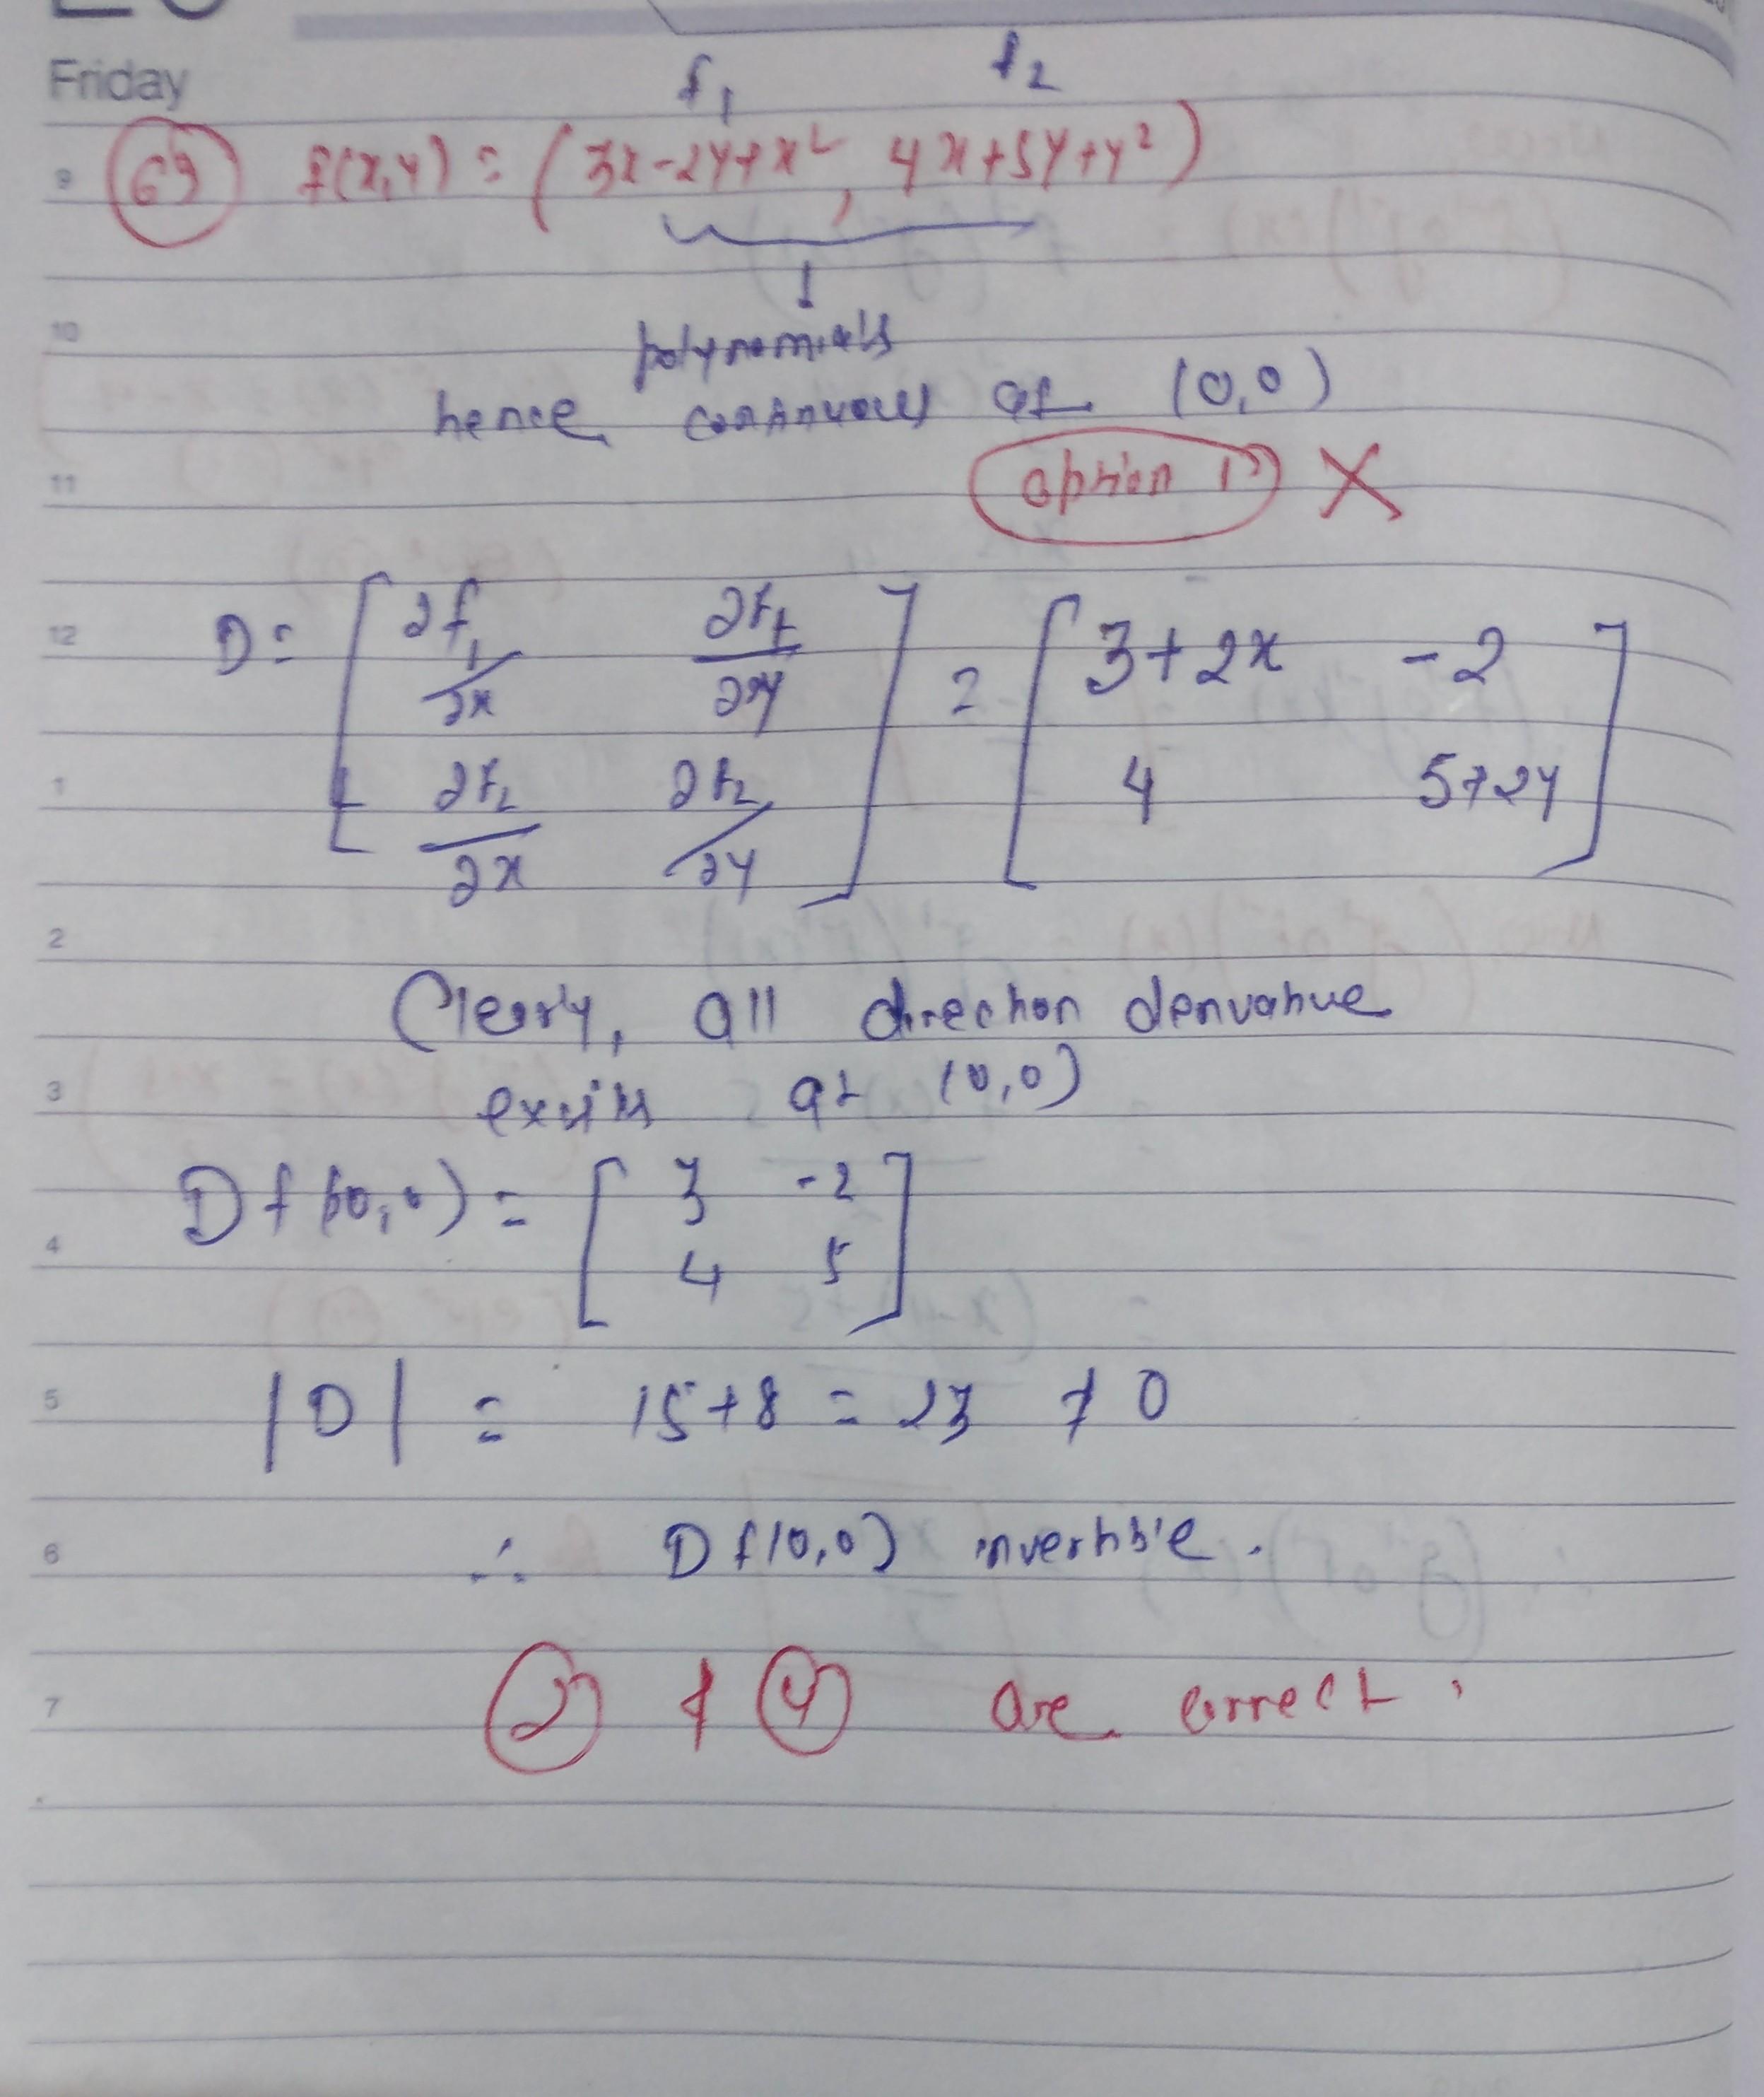 Friday
f1 f2
69 f(x,y) = (3x-2y+x², 4x+5y+y²)
9
↓
10
polynomials
hence continuous at (0,0)
11
option 1) X
12
D = [∂f1/∂x ∂f1/∂y = [3+2x -2
1
∂f2/∂x ∂f2/∂y] 4 5+2y]
2
Clearly, all direction derivative
3
exists at (0,0)
Df(0,0) = [3 -2
4
4 5]
5
|D| = 15+8 = 23 ≠ 0
6
∴ Df(0,0) invertible.
7
2) & 4) are correct.